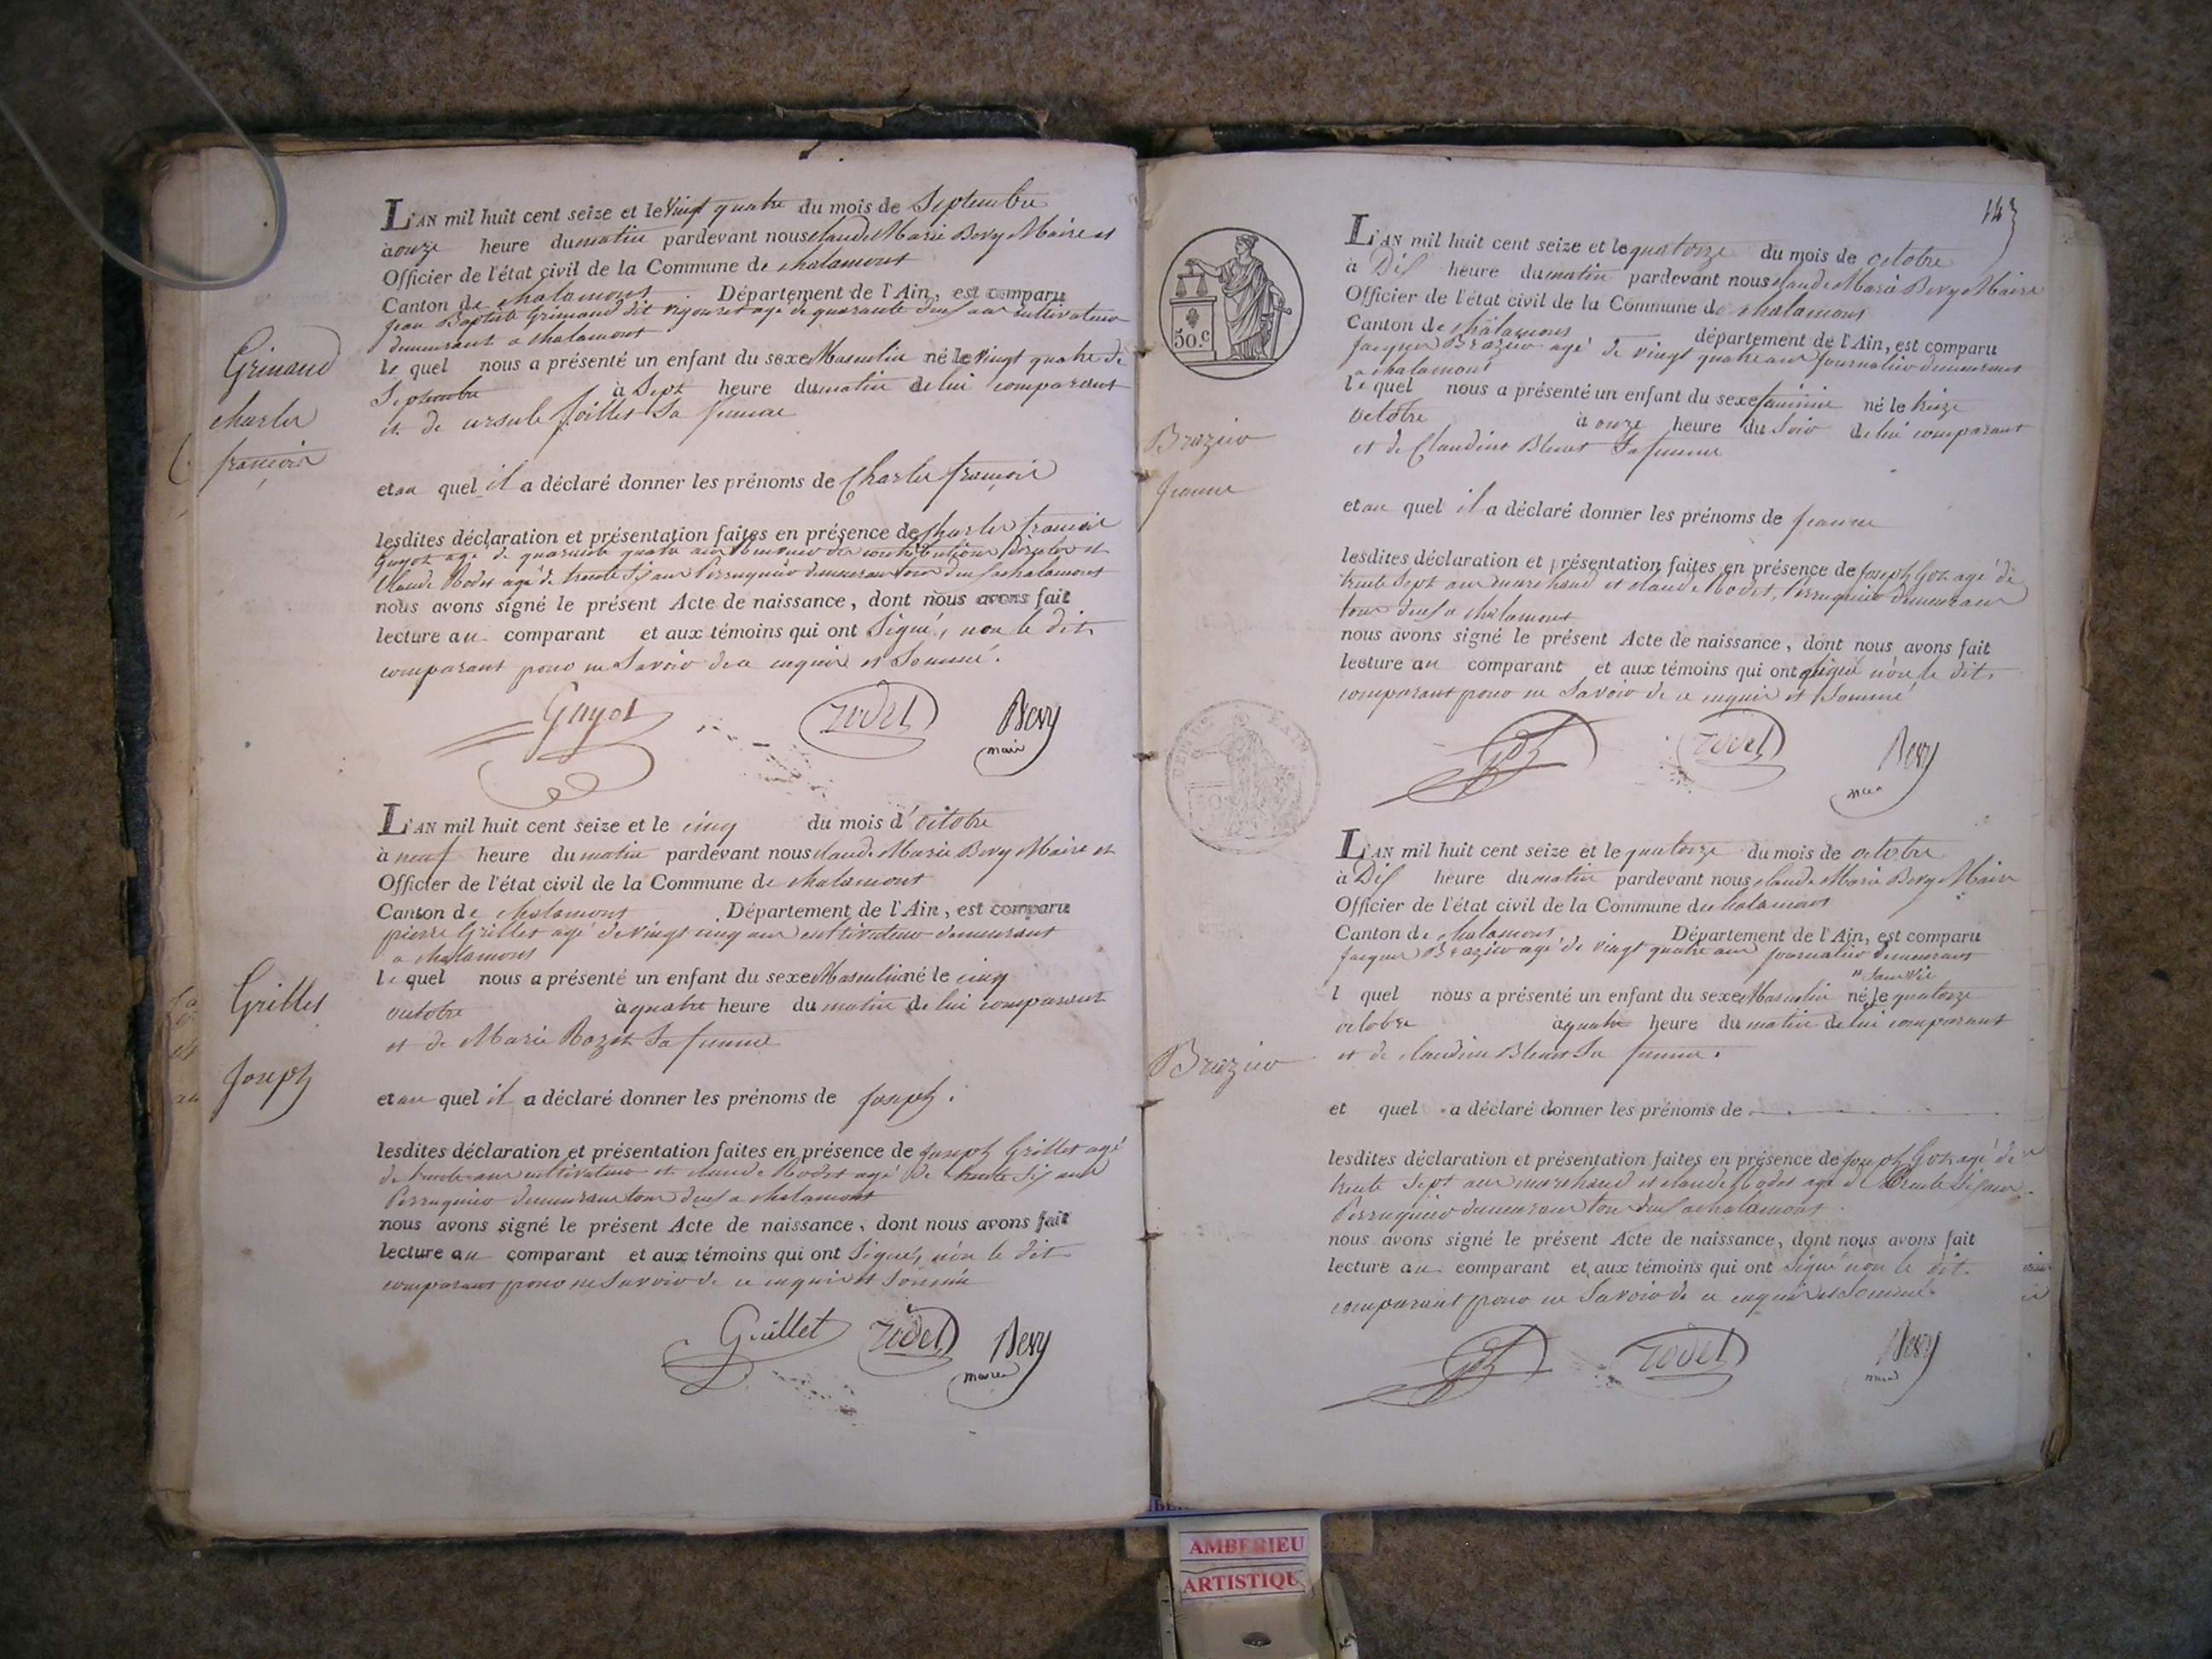 Grimaud
charles
françois
L'AN mil huit cent seize et le Vingt quatre du mois de Septembre
à onze heure du matin pardevant nous claude Marie Bevy Maire et
Officier de l'état civil de la Commune de chalamont
Canton de chalamont Département de l'Ain, est comparu
jean Baptiste Grimaud dit agé de quarante deux ans cultivateur
demeurant a chalamont
le quel nous a présenté un enfant du sexe Masculin né le vingt quatre de
Septembre à Sept heure du matin de lui comparant
et de ursule Joillet Sa femme
et au quel il a déclaré donner les prénoms de Charles françois
lesdites déclaration et présentation faites en présence de charles francois
Guyot agé de quarante quatre ans des contributions et
Claude Rodet agé de trente Six ans Perruquier demeurans tous deux a chalamont
nous avons signé le présent Acte de naissance, dont nous avons fait
lecture au comparant et aux témoins qui ont Signé, non le dit
comparant pour ne Savoir de ce enquis et Sommé.
Guyot Rodet Bevy
maire
Grillet
Joseph
L'AN mil huit cent seize et le cinq du mois d'octobre
à neuf heure du matin pardevant nous claude Marie Bevy Maire et
Officier de l'état civil de la Commune de chalamont
Canton de chalamont Département de l'Ain, est comparu
pierre Grillet agé de vingt cinq ans cultivateur demeurant
a chalamont
le quel nous a présenté un enfant du sexe Masculin né le cinq
octobre à quatre heure du matin de lui comparant
et de Marie Rozet Sa femme
et au quel il a déclaré donner les prénoms de Joseph.
lesdites déclaration et présentation faites en présence de Joseph Grillet agé
de trente ans cultivateur et claude Rodet agé de trente Six ans
Perruquier demeurans tous deux a chalamont
nous avons signé le présent Acte de naissance, dont nous avons fait
lecture au comparant et aux témoins qui ont Signé, non le dit
comparant pour ne Savoir de ce enquis et Sommé
Grillet Rodet Bevy
maire
143
50.c
Brazier
jeanne
L'AN mil huit cent seize et le quatorze du mois de octobre
à Dix heure du matin pardevant nous claude Marie Bevy Maire
Officier de l'état civil de la Commune de chalamont
Canton de chalamont département de l'Ain, est comparu
Jacques Brazier agé de vingt quatre ans journalier demeurant
a chalamont
le quel nous a présenté un enfant du sexe feminin né le treize
octobre à onze heure du Soir de lui comparant
et de Claudine Blenet Sa femme
et au quel il a déclaré donner les prénoms de jeanne
lesdites déclaration et présentation faites en présence de Joseph Goz agé de
trente Sept ans marchand et claude Rodet, Perruquier demeurans
tous deux a chalamont
nous avons signé le présent Acte de naissance, dont nous avons fait
lecture au comparant et aux témoins qui ont signé non le dit
comparant pour ne Savoir de ce enquis et Sommé
Goz Rodet Bevy
maire
Brazier
L'AN mil huit cent seize et le quatorze du mois de octobre
à Dix heure du matin pardevant nous claude Marie Bevy Maire
Officier de l'état civil de la Commune de chalamont
Canton de chalamont Département de l'Ain, est comparu
Jacques Brazier agé de vingt quatre ans journalier demeurant
" Sans Vie
l quel nous a présenté un enfant du sexe Masculin né le quatorze
octobre à quatre heure du matin de lui comparant
et de claudine Blenet Sa femme.
et quel a déclaré donner les prénoms de
lesdites déclaration et présentation faites en présence de Joseph Goz agé de
trente Sept ans marchand et claude Rodet agé de trente Six ans
Perruquier demeurans tous deux a chalamont.
nous avons signé le présent Acte de naissance, dont nous avons fait
lecture au comparant et aux témoins qui ont Signé non le dit
comparant pour ne Savoir de ce enquis et Sommé
Goz Rodet Bevy
maire
AMBERIEU
ARTISTIQU